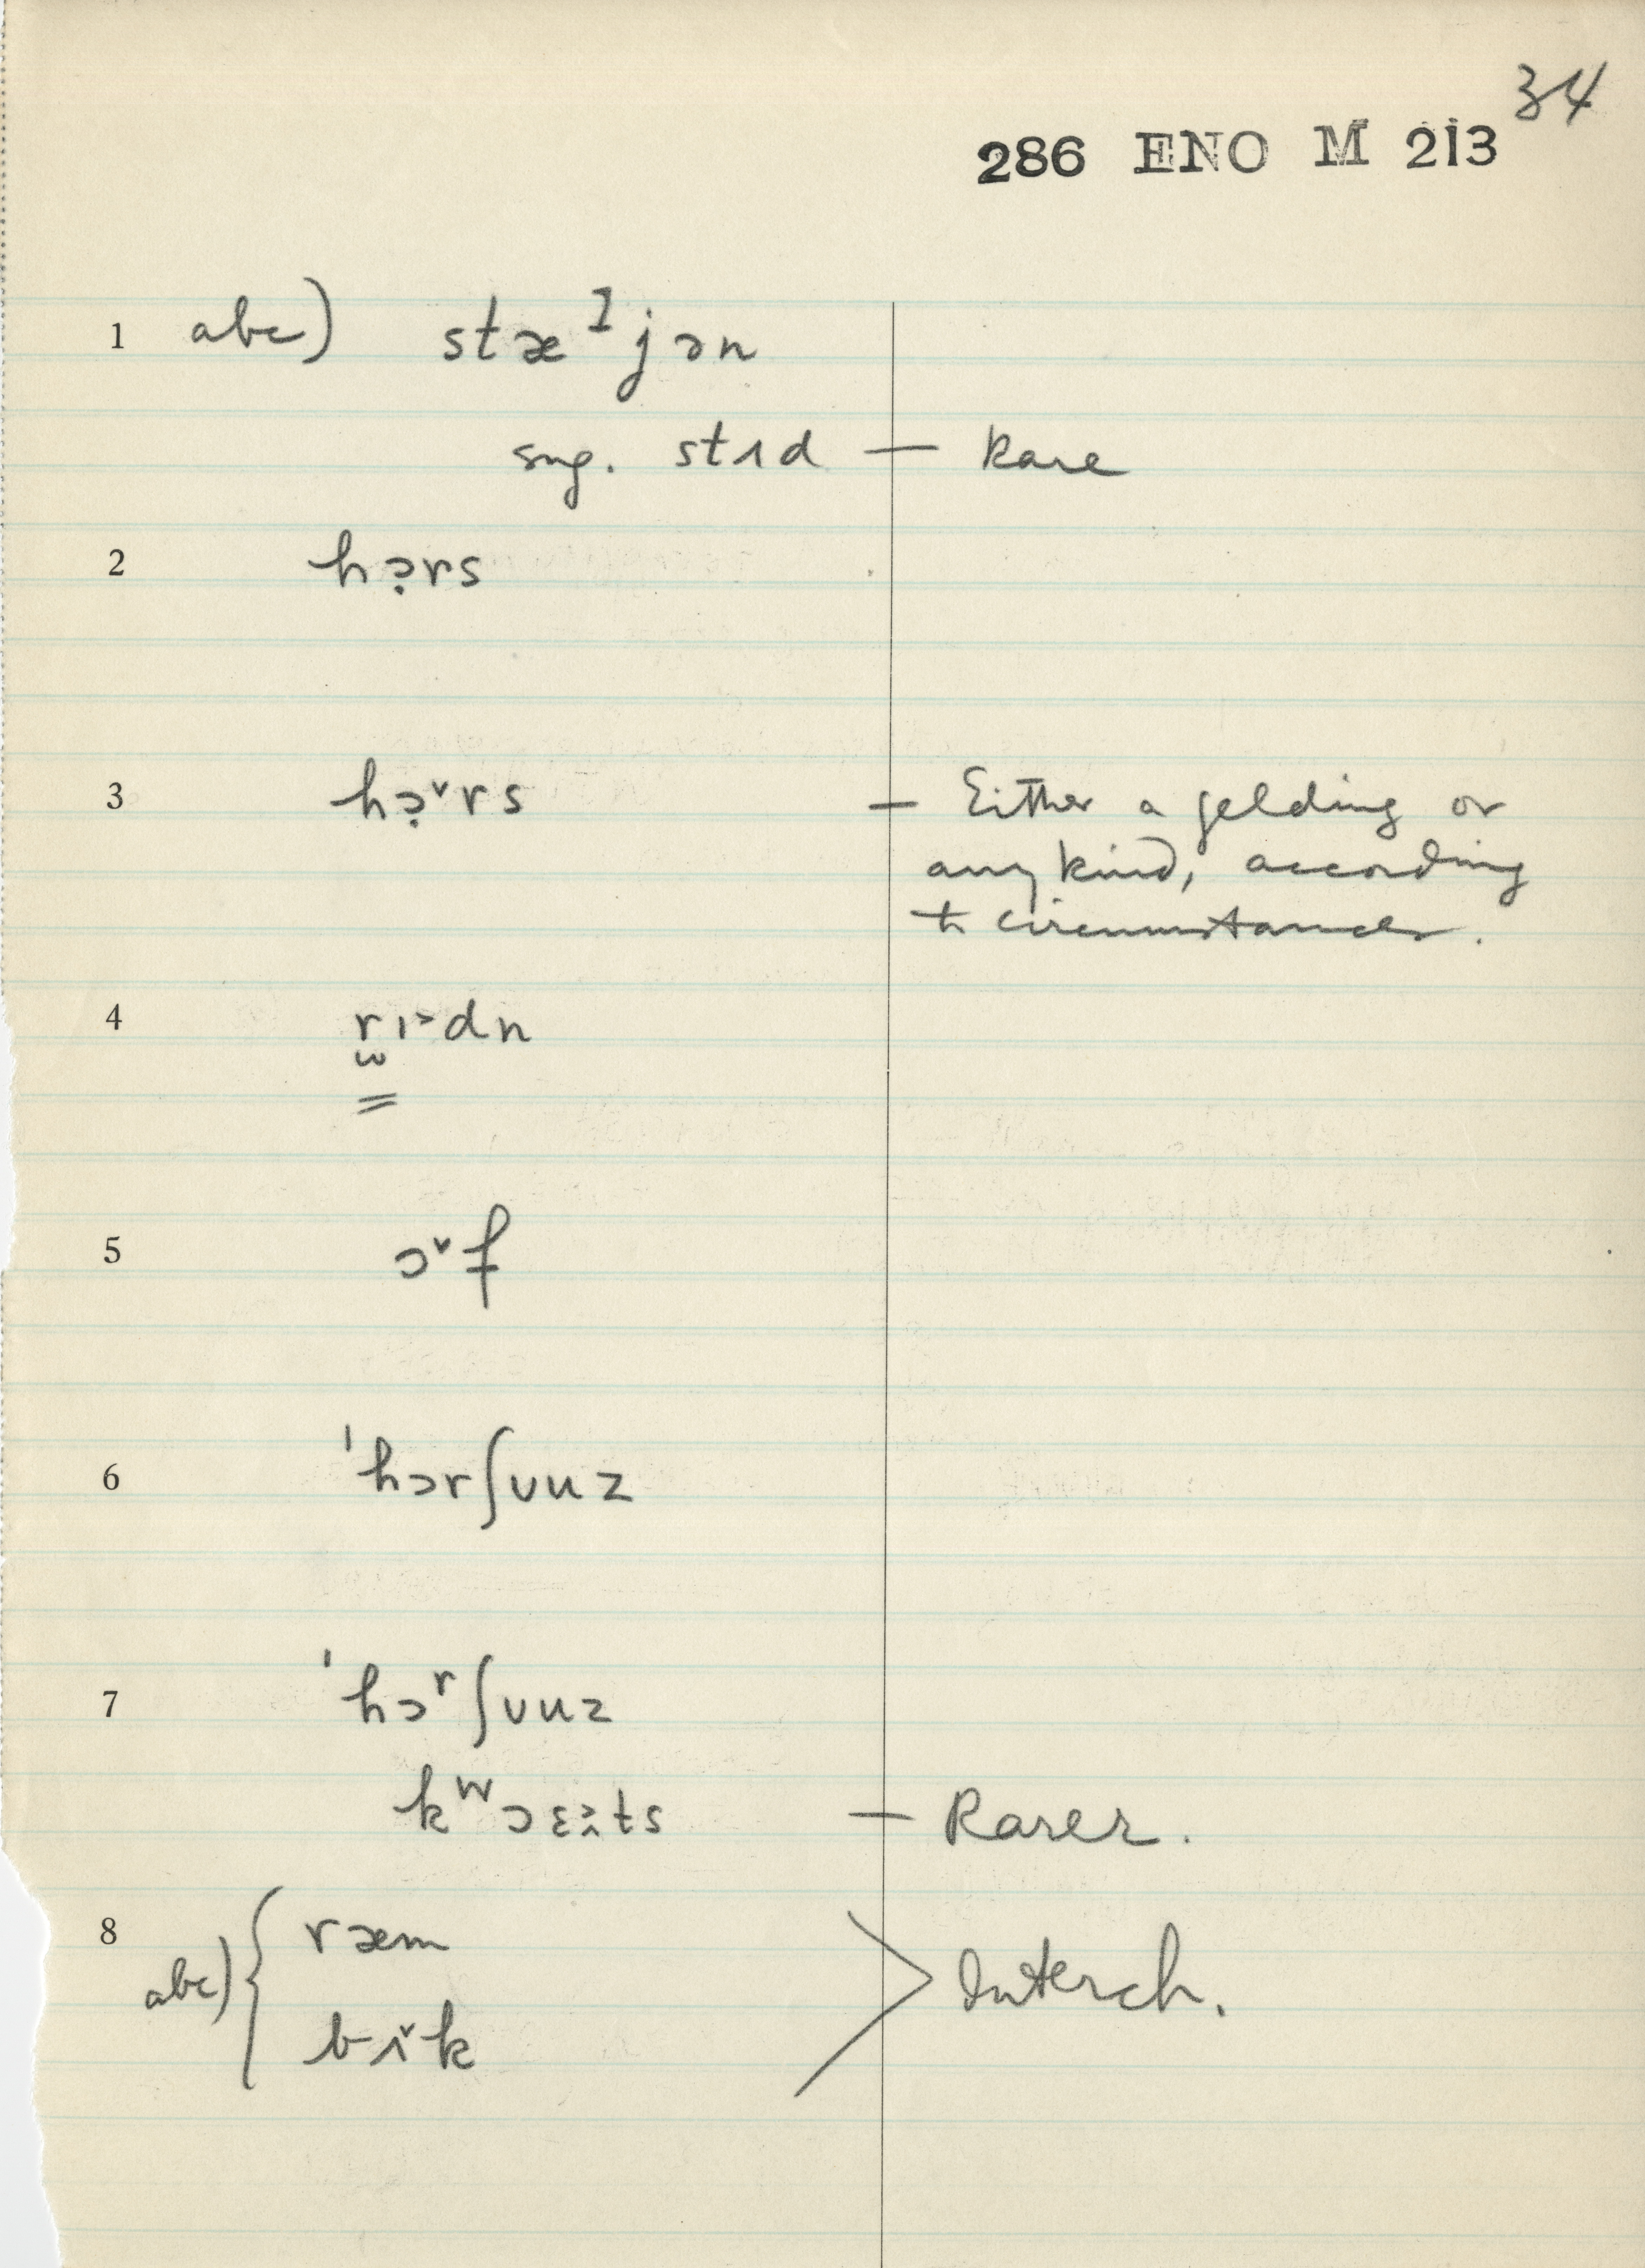 34
286 ENO M 213
1 abc) stæᴵjən
sug. stɪd — Rare
2 hɔ̣rs
3 hɔ̣˅rs — Either a gelding or
any kind, according
to circumstances.
4 r̫ɪ˃dn
5 ɔ˅f
6 ˈhɔrʃuuz
7 ˈhɔʳʃuuz
kʷɔɛts — Rarer.
8 abc) { ræm
bɪ˅k
> Interch.